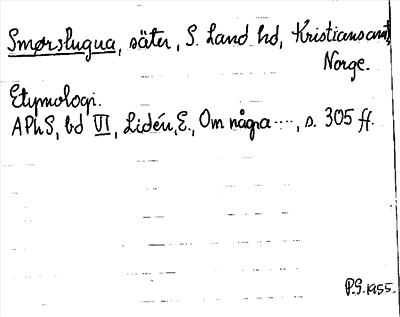 Smørslugua, säter, S. Land hd, Kristiansamt,
Norge.
Etymologi.
APhS, bd VI, Lidén, E., Om några ····, s. 305 ff.
P.G. 1955.